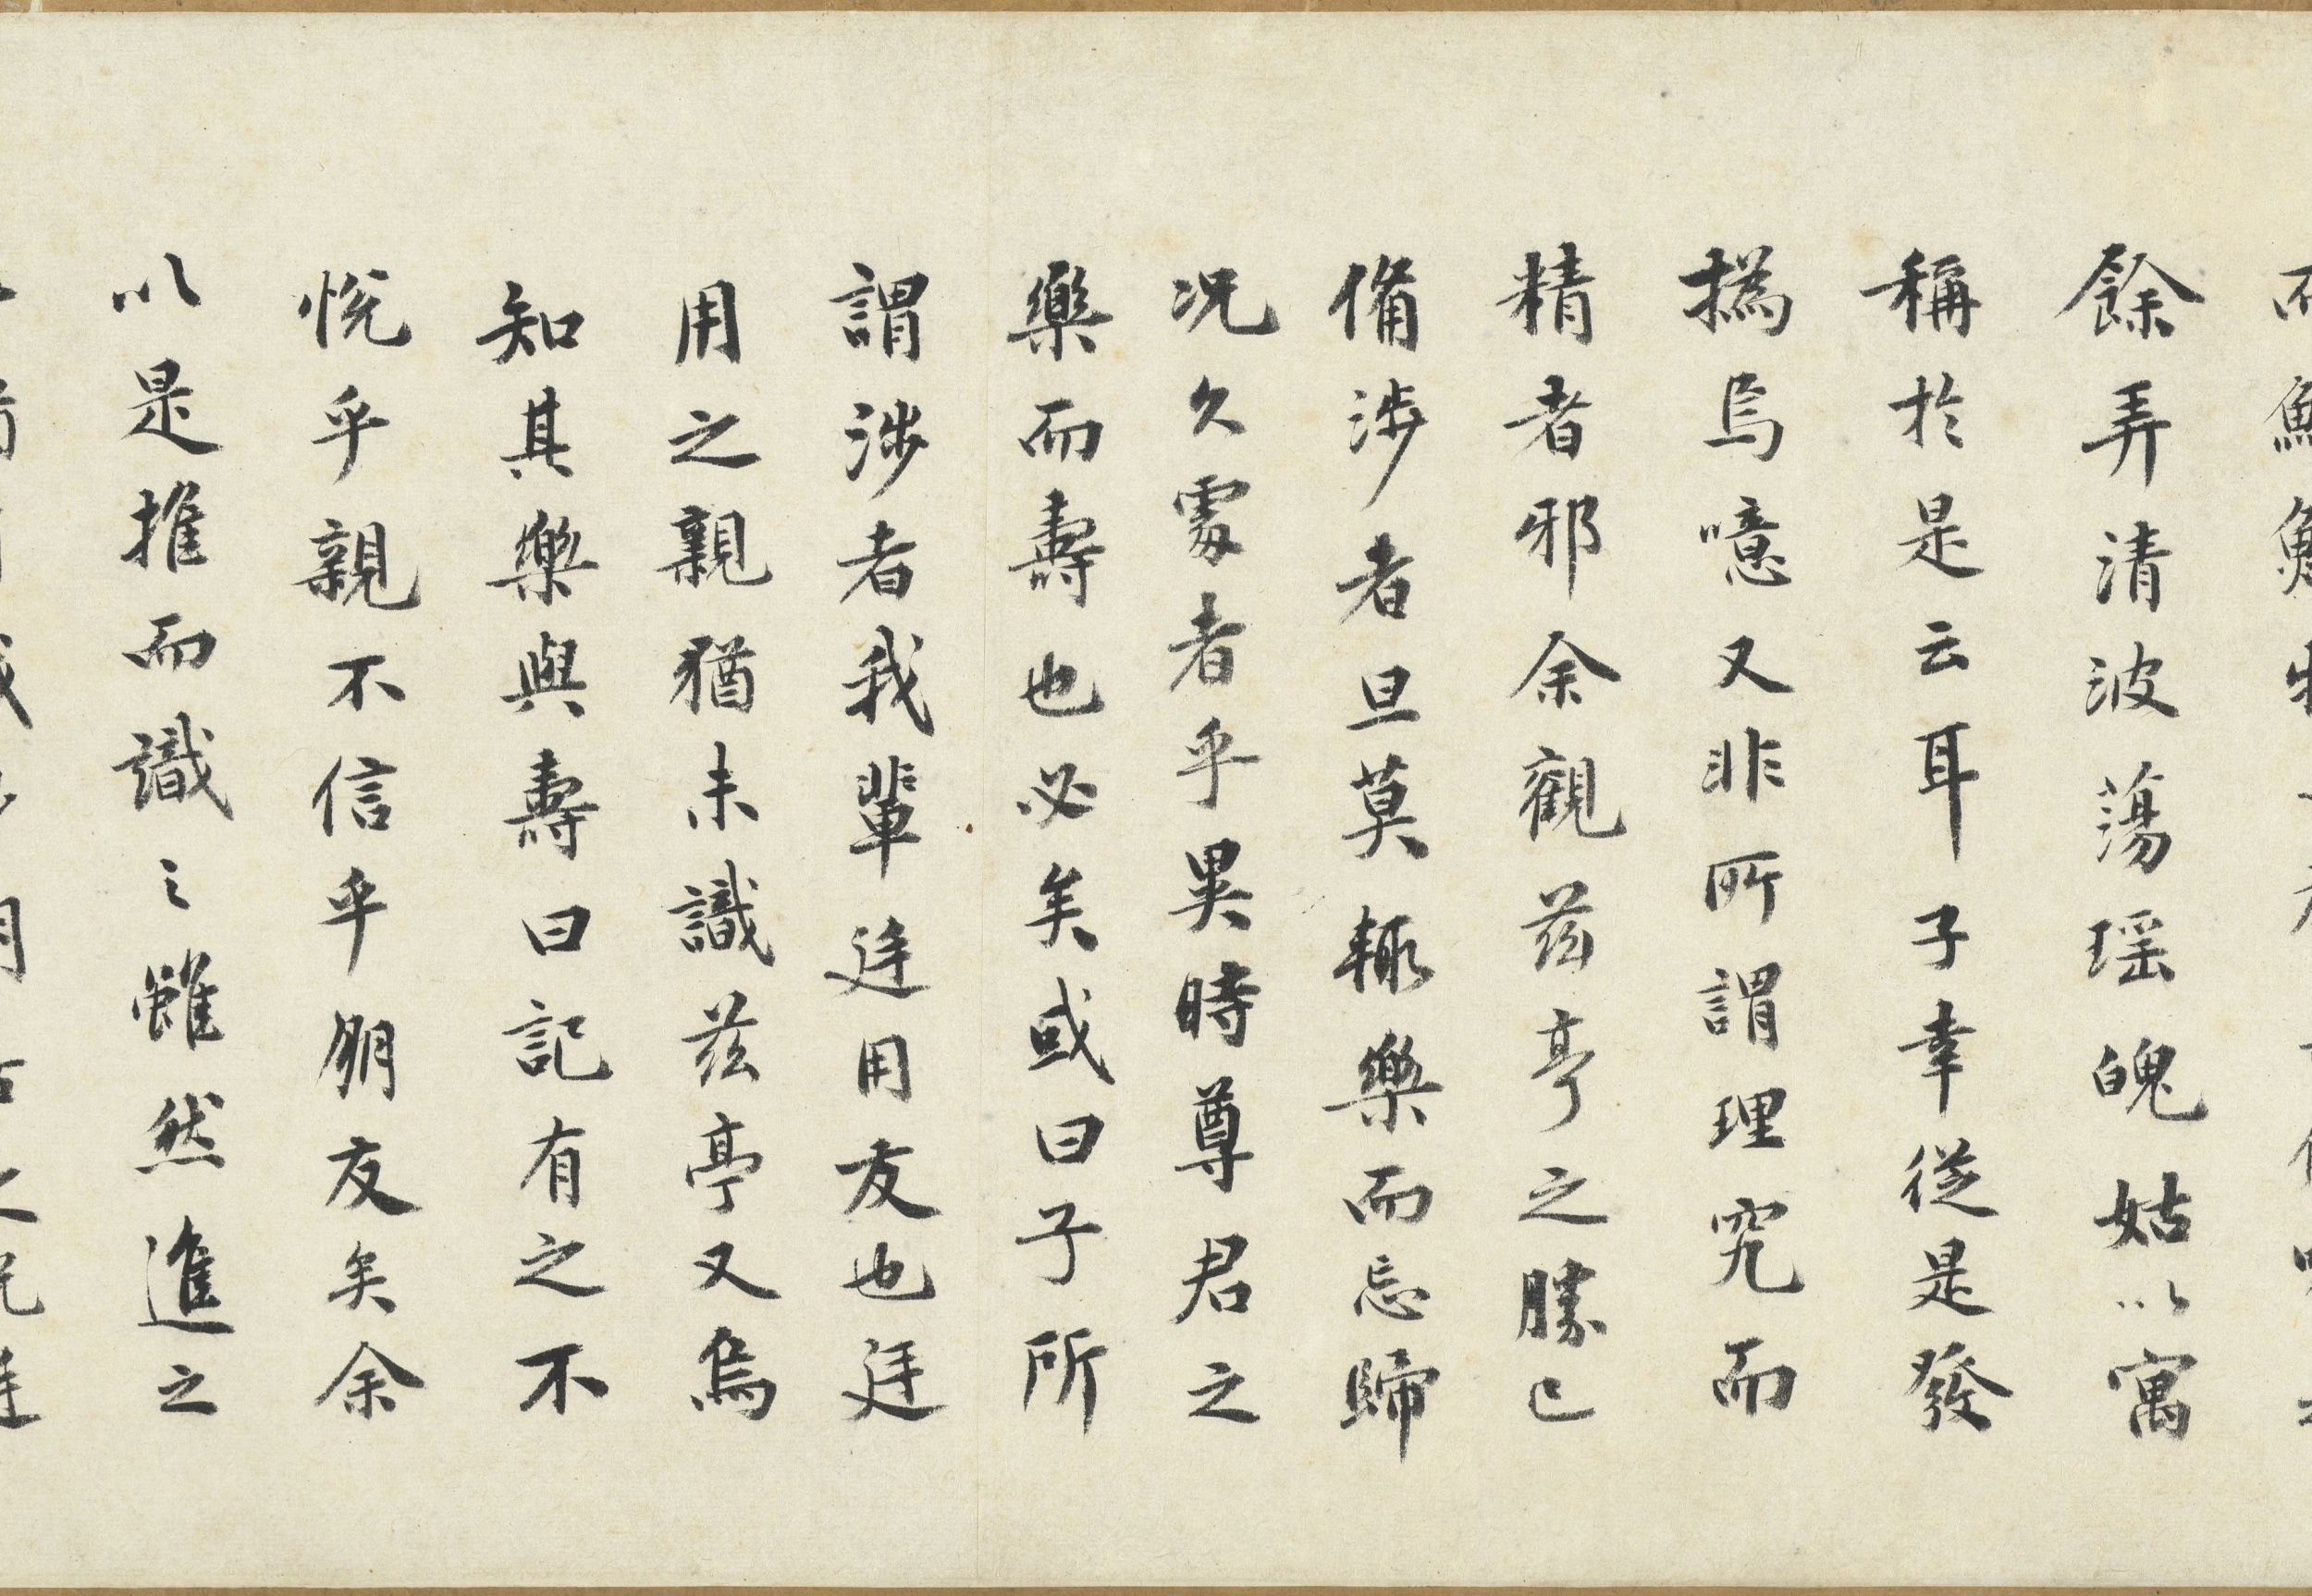 餘弄清波蕩瑶魄姑以寓
稱於是云耳子幸從是發
撝烏噫又非所謂理究而
精者邪余觀兹亭之勝已
備涉者旦莫輙樂而忘歸
况久處者乎異時尊君之
樂而壽也必矣或曰子所
謂涉者我輩廷用友也廷
用之親猶未識兹亭又烏
知其樂與壽曰記有之不
悅乎親不信乎朋友矣余
以是推而識之雖然進之